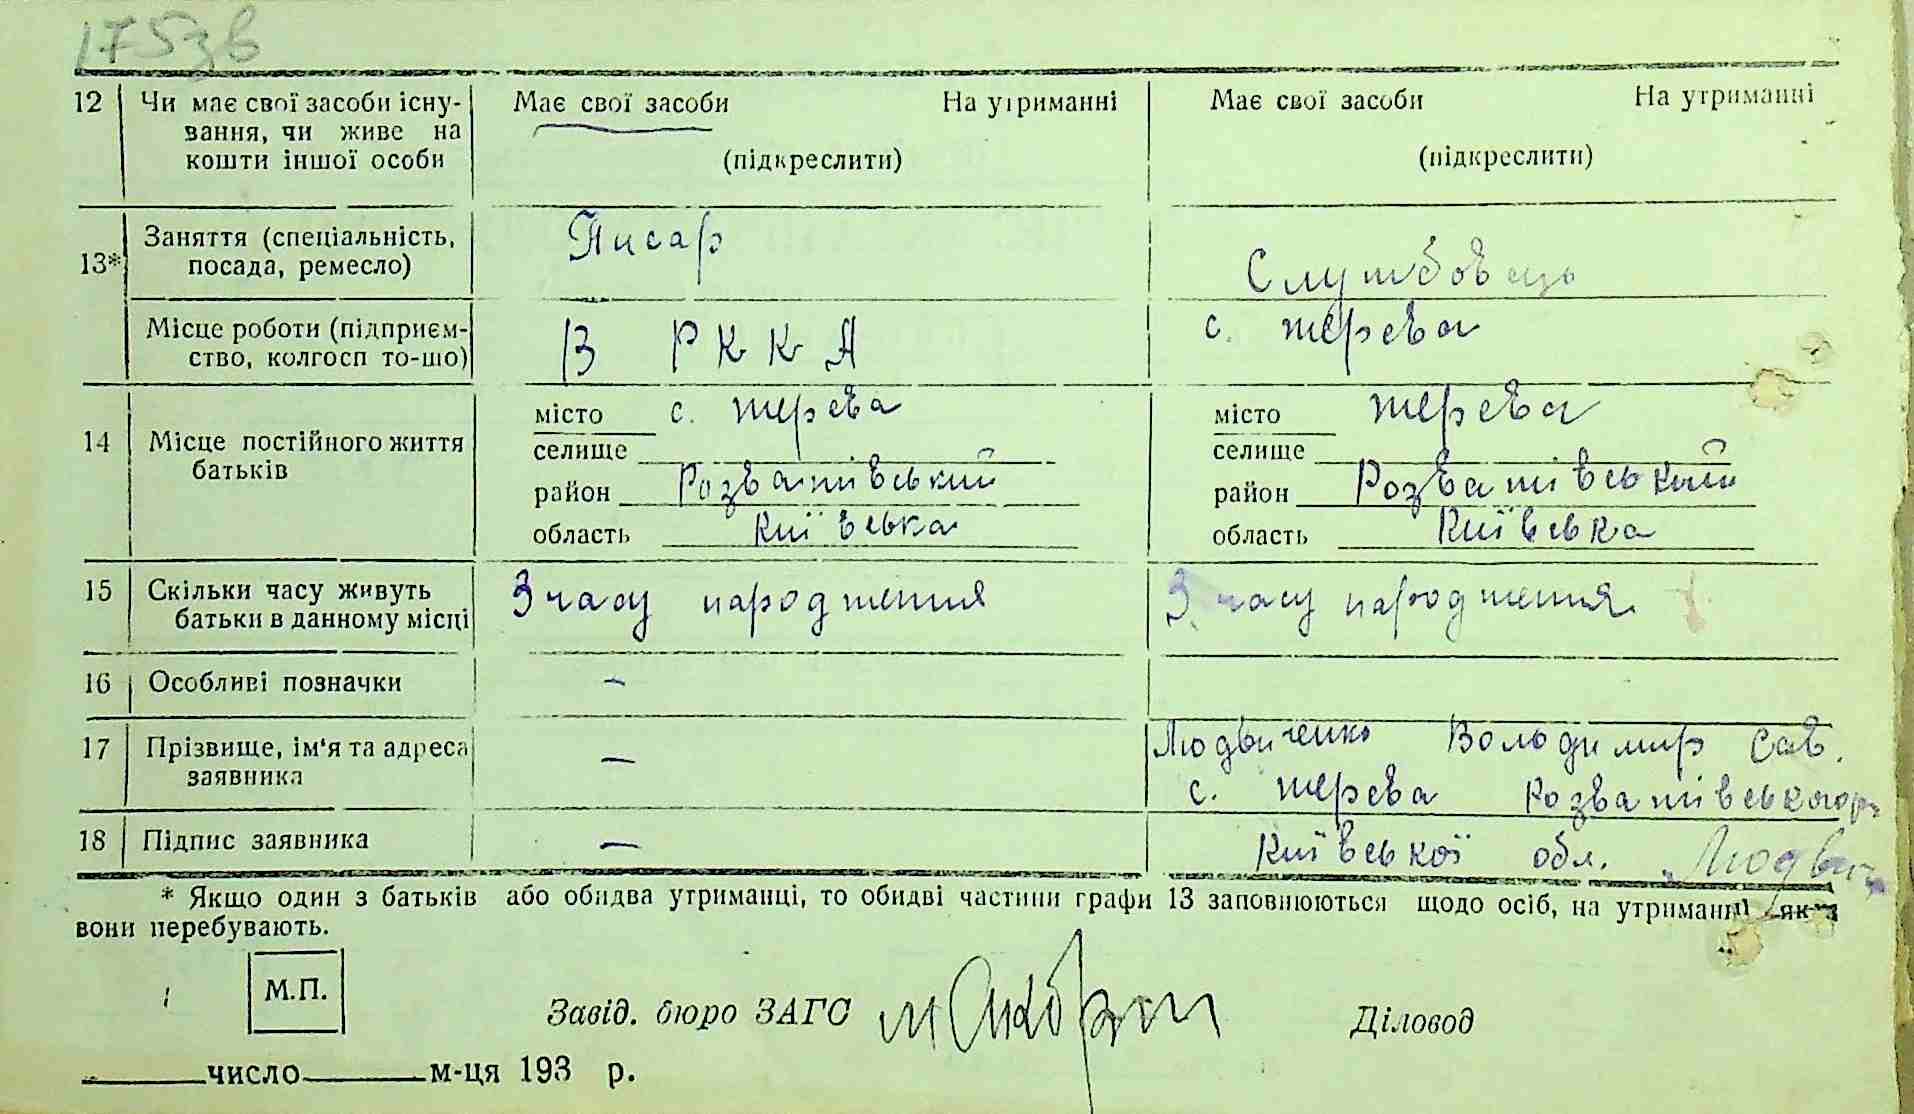 175зв
12 Чи має свої засоби існу- Має свої засоби На утриманні Має свої засоби На утриманні
вання, чи живе на
кошти іншої особи (підкреслити) (підкреслити)
Заняття (спеціальність, Писар
13* посада, ремесло) Службовець
Місце роботи (підприєм- В РККА с. Жерева
ство, колгосп то-що)
місто с. Жерева місто Жерева
14 Місце постійного життя селище селище
батьків район Розважівський район Розважівський
область Київська область Київська
15 Скільки часу живуть З часу народження З часу народження
батьки в данному місці
16 Особливі позначки –
17 Прізвище, ім'я та адреса – Людвиченко Володимир Сав.
заявника с. Жерева Розважівського р
18 Підпис заявника – Київської обл. Людви
* Якщо один з батьків або обидва утриманці, то обидві частини графи 13 заповнюються щодо осіб, на утриманні яких
вони перебувають.
М.П.
Завід. бюро ЗАГС Діловод
число м-ця 193 р.